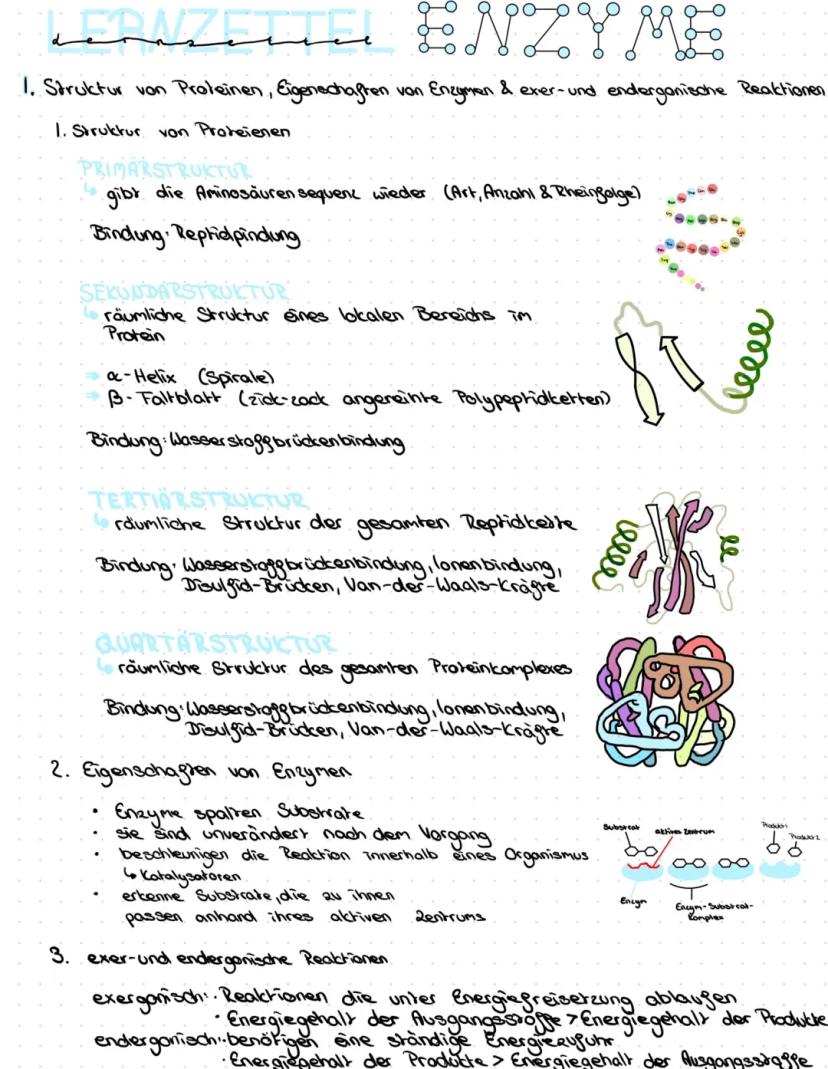 LERNZETTEL ENZYME
lernzettel
1. Struktur von Proteinen, Eigenschaften von Enzymen & exer- und endergonische Reaktionen
1. Struktur von Proteienen
PRIMÄRSTRUKTUR
↳ gibt die Aminosäurensequenz wieder (Art, Anzahl & Rheinfolge)
Bindung: Peptidpindung
SEKUNDÄRSTRUKTUR
↳ räumliche Struktur eines lokalen Bereichs im
Protein
⇒ α-Helix (Spirale)
⇒ β-Faltblatt (zick-zack angereihte Polypeptidketten)
Bindung: Wasserstoffbrückenbindung
TERTIÄRSTRUKTUR
↳ räumliche Struktur der gesamten Peptidkette
Bindung: Wasserstoffbrückenbindung, Ionenbindung,
Disulfid-Brücken, Van-der-Waals-Kräfte
QUARTÄRSTRUKTUR
↳ räumliche Struktur des gesamten Proteinkomplexes
Bindung: Wasserstoffbrückenbindung, Ionenbindung,
Disulfid-Brücken, Van-der-Waals-Kräfte
2. Eigenschaften von Enzymen
• Enzyme spalten Substrate
• sie sind unverändert nach dem Vorgang
• beschleunigen die Reaktion innerhalb eines Organismus
↳ Katalysatoren
• erkenne Substrate, die zu ihnen
passen anhand ihres aktiven Zentrums
Substrat aktives Zentrum Produkt 1
Produkt 2
Enzym Enzym-Substrat-
Komplex
3. exer- und endergonische Reaktionen
exergonisch: • Reaktionen die unter Energiefreisetzung ablaufen
• Energiegehalt der Ausgangsstoffe > Energiegehalt der Produkte
endergonisch: • benötigen eine ständige Energiezufuhr
• Energiegehalt der Produkte > Energiegehalt der Ausgangsstoffe